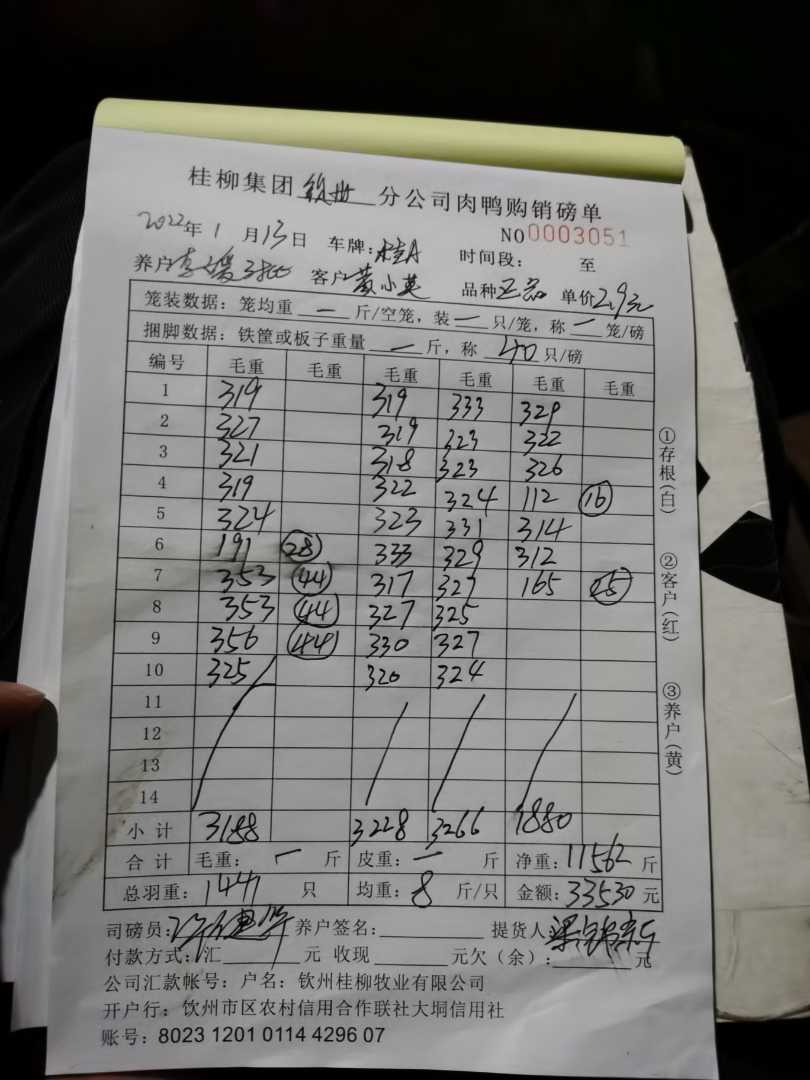 桂柳集团 钦州 分公司肉鸭购销磅单
NO0003051
2022年 1 月 13日 车牌:桂A 时间段: 至
养户 客户黄小英 品种正品 单价2.9元
笼装数据:笼均重 一 斤/空笼,装 一 只/笼,称 一 笼/磅
捆脚数据:铁筐或板子重量 一 斤,称 40 只/磅
编号 毛重 毛重 毛重 毛重 毛重 毛重
1 319 319 333 329
2 327 319 323 322
3 321 318 323 326
4 319 322 324 112 16
5 324 323 331 314
6 191 28 333 329 312
7 353 44 317 327 165 25
8 353 44 327 325
9 356 44 330 327
10 325 320 324
11
12
13
14
小计 3188 3228 3266 1880
合计 毛重: 一 斤 皮重: 一 斤 净重:11562 斤
总羽重:1441 只 均重:8 斤/只 金额:33530 元
司磅员: 养户签名: 提货人
付款方式:汇 元 收现 元欠(余): 元
公司汇款帐号:户名:钦州桂柳牧业有限公司
开户行:钦州市区农村信用合作联社大垌信用社
账号:8023 1201 0114 4296 07
①存根(白)
②客户(红)
③养户(黄)